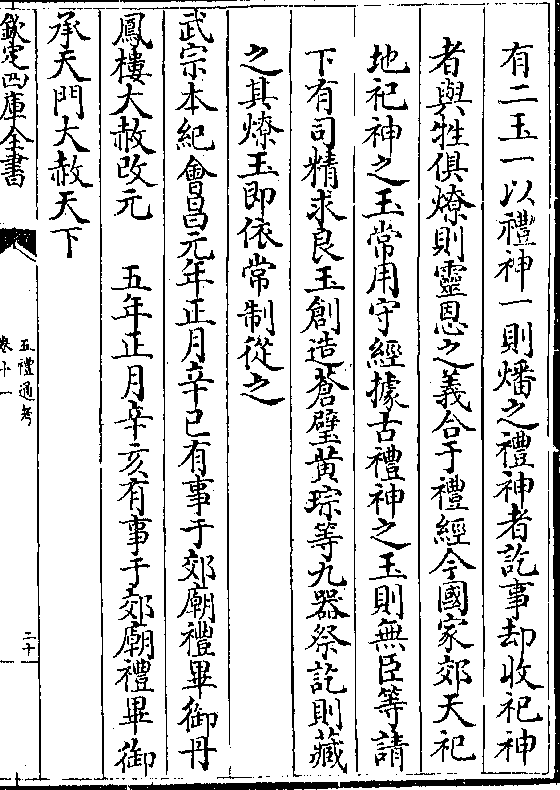 有二玉一以禮神一則燔之禮神者訖事却收祀神
者與牲俱燎則靈恩之義合于禮經今國家郊天祀
地祀神之玉常用守經據古禮神之玉則無臣等請
下有司精求良玉創造蒼璧黄琮等九器祭訖則藏
之其燎玉即依常制從之
武宗本紀會昌元年正月辛巳有事于郊廟禮畢御丹
鳳樓大赦改元　五年正月辛亥有事于郊廟禮畢御
承天門大赦天下
欽定四庫全書
五禮通考
卷十一
二十